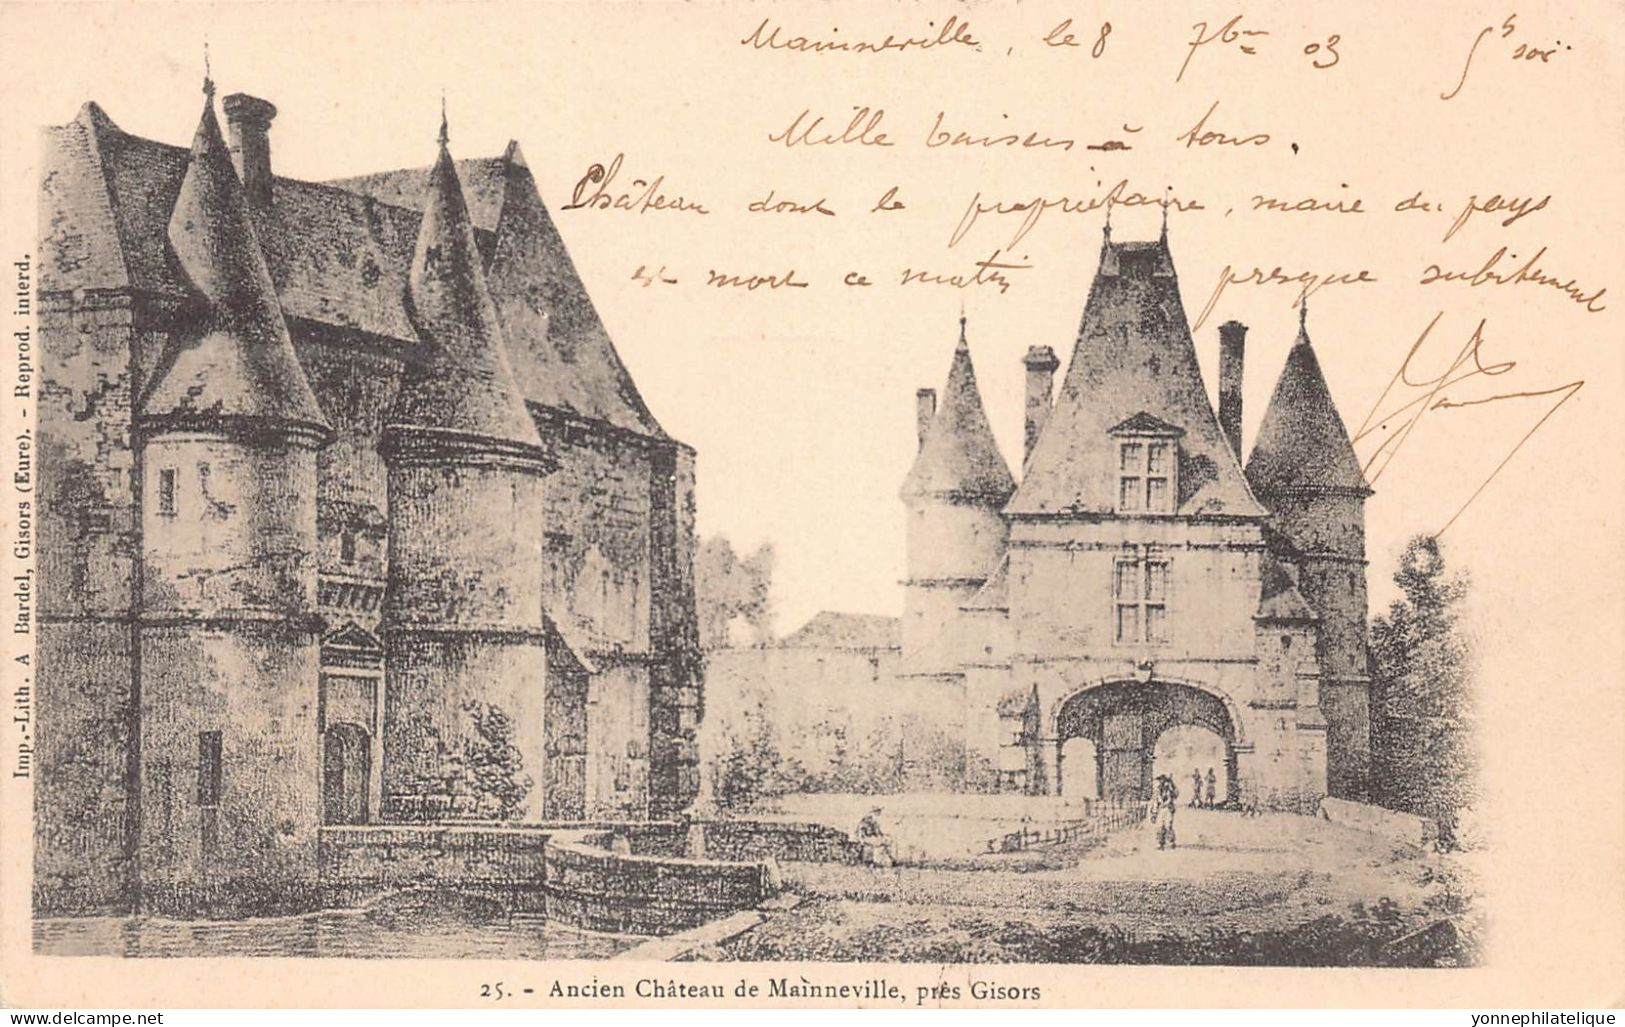 Mainneville, le 8 7bre 03 5h soir
Mille baisers à tous.
Château dont le propriétaire, maire du pays
est mort ce matin presque subitement
Imp.-Lith. A Bardel, Gisors (Eure). - Reprod. interd.
25. - Ancien Château de Maìnneville, près Gisors
© delcampe.net
yonnephilatelique